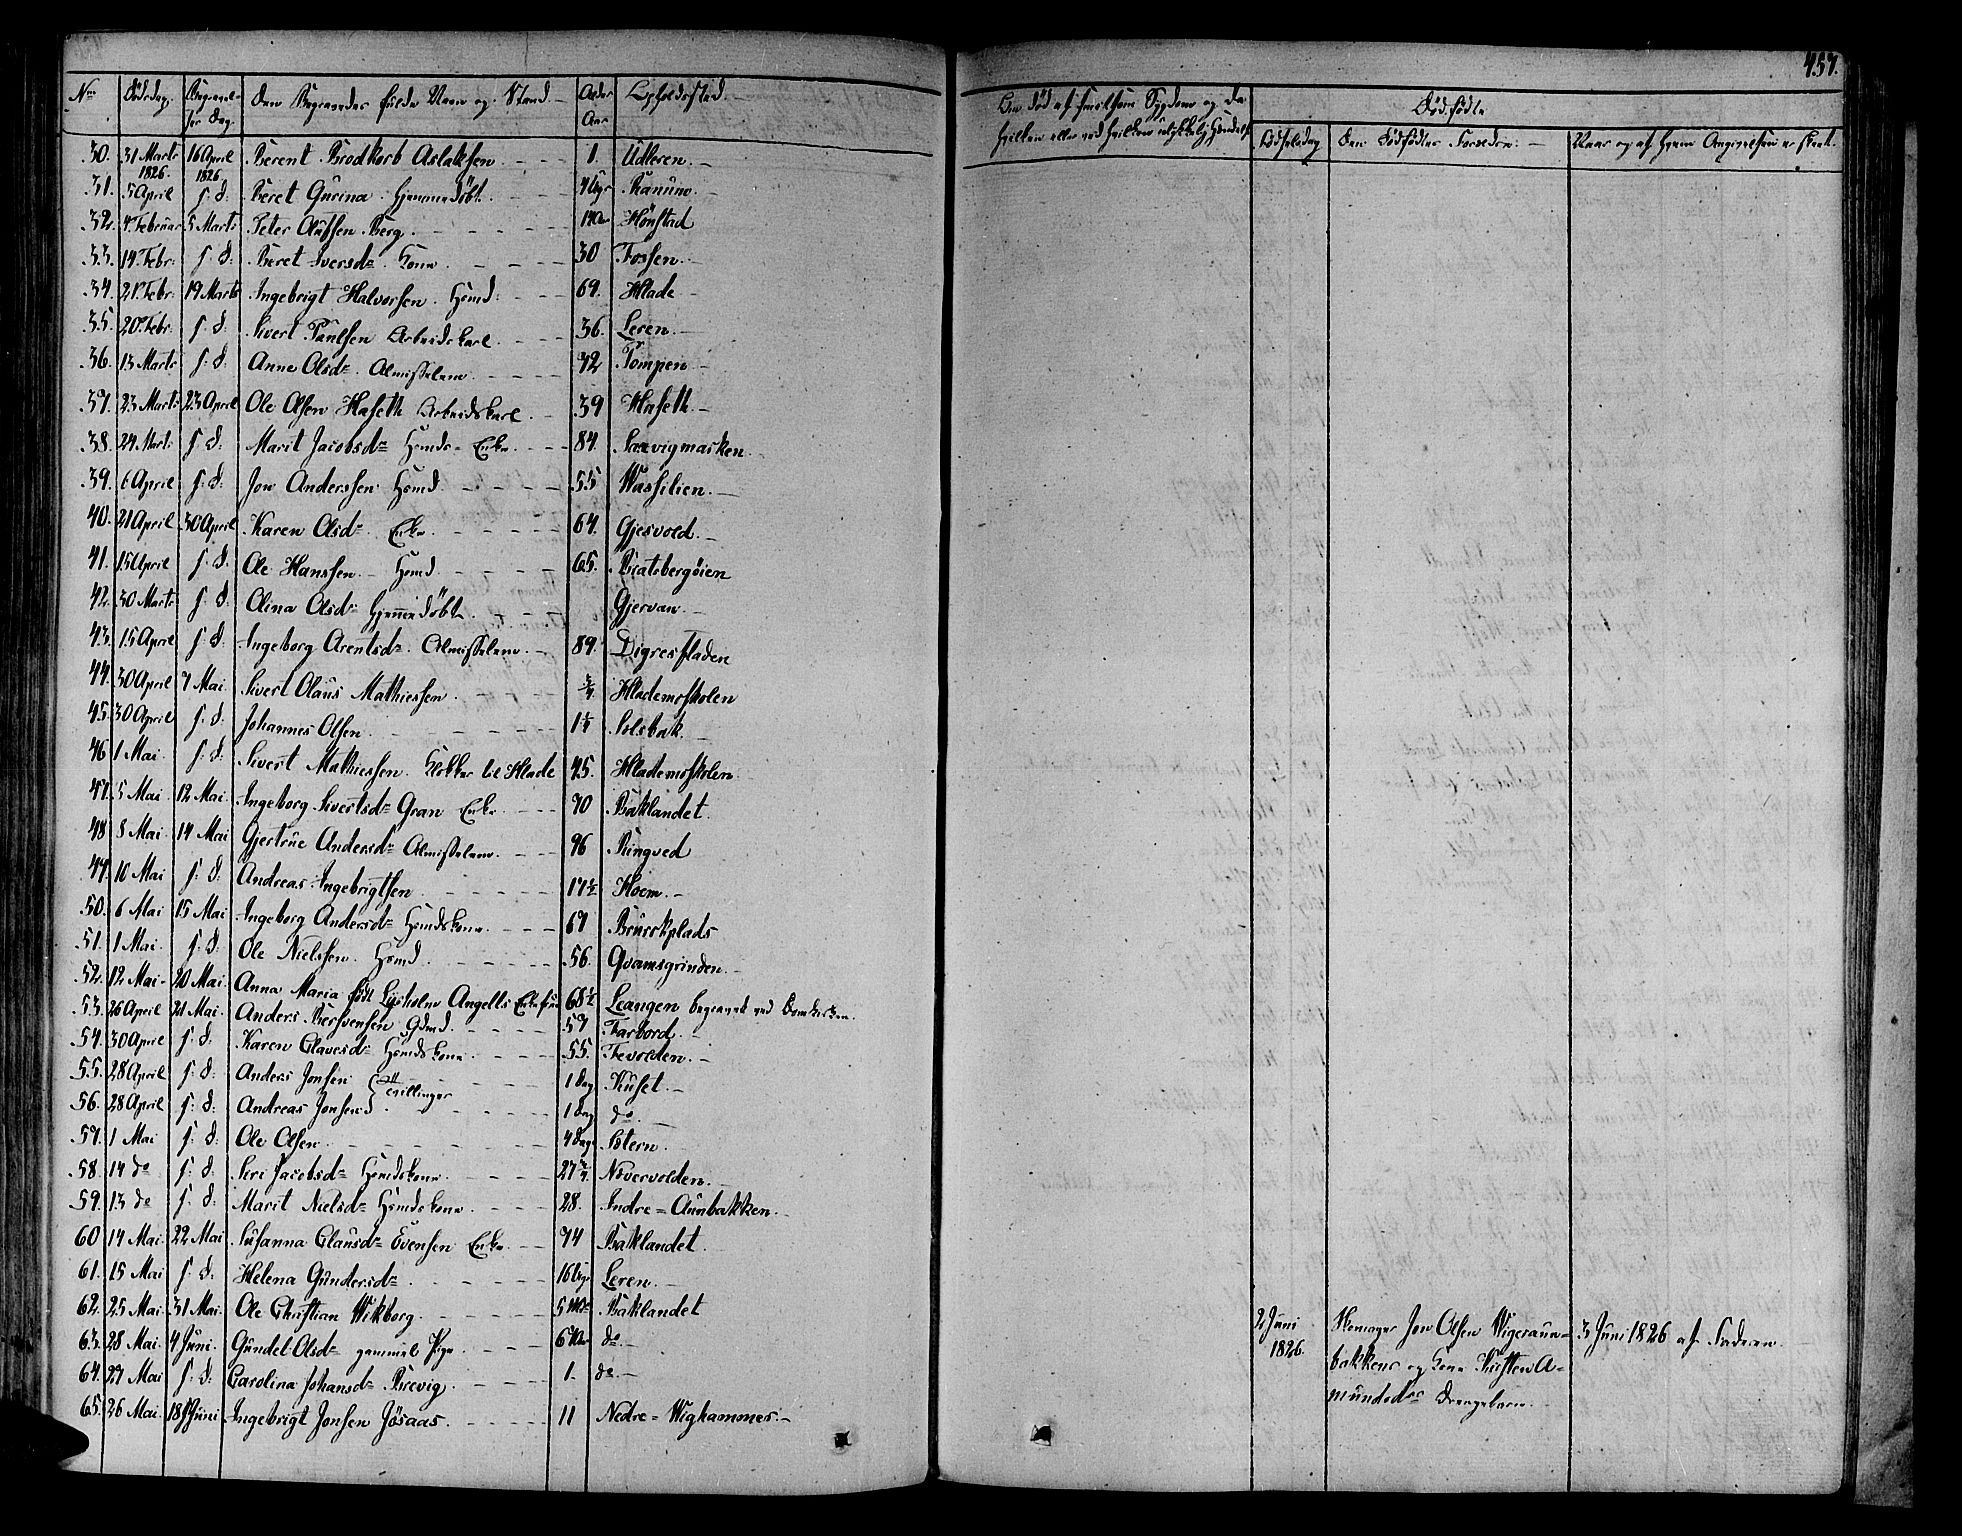 457.
Nr. Dödsdag. Begravelses Dag. Den Begravedes fulde Navn og Stand. Alder Aar Opholdssted.
30. 31 Marts 1826. 16 April 1826 Berent Brodkorb Aslaksen 1. Udleren.
31. 5 April s: d: Beret Gurina. Hjemmedöbt. Ranum.
32. 4. Februar 5 Marts Peter Olufsen Berg. Hönstad
33. 14. Febr: s: d: Beret Iversdr. Kone. 30 Fossen.
34. 21. Febr: 19 Marts Ingebrigt Halvorsen. Huusmd: 69. Hlade
35. 20. Febr: s: d: Sivert Paulsen Arbeidskarl. 36. Leren.
36. 13 Marts s: d: Anne Olsdr. Almisselem. 72 Tompen
37. 23 Marts 23 April Ole Olsen Haseth Arbeidskarl. 39 Haseth.
38. 24. Marts s: d: Marit Jacobsdr Huusmds= Enke 84. Saxvigmarken.
39. 6 April s: d: Jon Anderssen Huusmd. 55 Wassilien.
40. 21 April 30 April Karen Olsdr Enke. 64. Gjesvold.
41. 15 April s: d: Ole Hanssen. Huusmd. 65. Bratsbergöien
42. 30 Marts s: d: Olina Olsdr Hjemmedöbt. Gjervan.
43. 15 April s: d: Ingeborg Arentsdr. Almisselem. 89. Digresfladen
44. 30 April 7 Mai. Sivert Olaus Mathiessen. 3/4 Hlademoskolen
45. 30 April s: d: Johannes Olsen. Solsbak.
46 1 Mai. s: d: Sivert Mathiessen. Klokker til Hlade 45. Hlademoskolen.
47. 5 Mai 12 Mai. Ingeborg Sivertsdr Gran Enke. 70 Baklandet.
48 8 Mai. 14 Mai Gjertrue Andersdr Almisselem. 76 Ringved
49. 10 Mai s: d: Andreas Ingebrigtsen 17½ Hoem.
50. 6 Mai 15 Mai Ingeborg Andersdr Huusmdskone. 67 Bruurkplads
51. 1 Mai. s: d: Ole Nielssen. Huusmd. 56. Qvamsgrinden.
52. 12 Mai. 20 Mai. Anna Maria födt Lysholm Angells Enkefrue 68½ Leangen begravet ved Domkirken.
53. 26 April 21 Mai. Anders Bersvensen Gdmd. 57 Farbord.
54. 30 April s: d: Karen Olavesdr Huusmdskone 55. Tevolden.
55. 28 April s: d: Anders Jonsen } Tvillinger 1 Dag Kuset.
56. 28 April s: d: Andreas Jonsen 1 Dag do
57. 1 Mai s: d: Ole Olsen. 4 Dage Stern.
58. 14 do s: d: Seri Jacobsdr Huusmdskone. 27 Növervolden.
59. 13 do s: d: Marit Nielsdr Huusmdskone 28. Indre=Aunbakken.
60 14 Mai. 22 Mai Susanna Clausdr Evensen Enke. 74 Baklandet
61. 15 Mai s: d: Helena Gundersdr. 16 Uger Leren.
62. 25 Mai. 31 Mai. Ole Christian Wikborg. Baklandet
63. 28 Mai. 4 Juni. Gundel Olsdr gammel Pige do
64. 27 Mai s: d: Carolina Johansdr Brevig. 1. do
65. 26 Mai. 18 Juni Ingebrigt Jonsen Jösaas. 11 Nedre=Wighammer.
Om död af smitsom Sygdom og da
hvilken eller ved hvilken ulykkelig Hændelse
Dödfödte
Födselsdag Den Dödfödtes Forældre. Naar og af hvem Angivelsen er skeet.
2 Juni 1826. Jon Olsen Wigeraunbakken og Kone Kirsten Amundsdr Drengebarn. 3 Juni 1826 af Faderen.